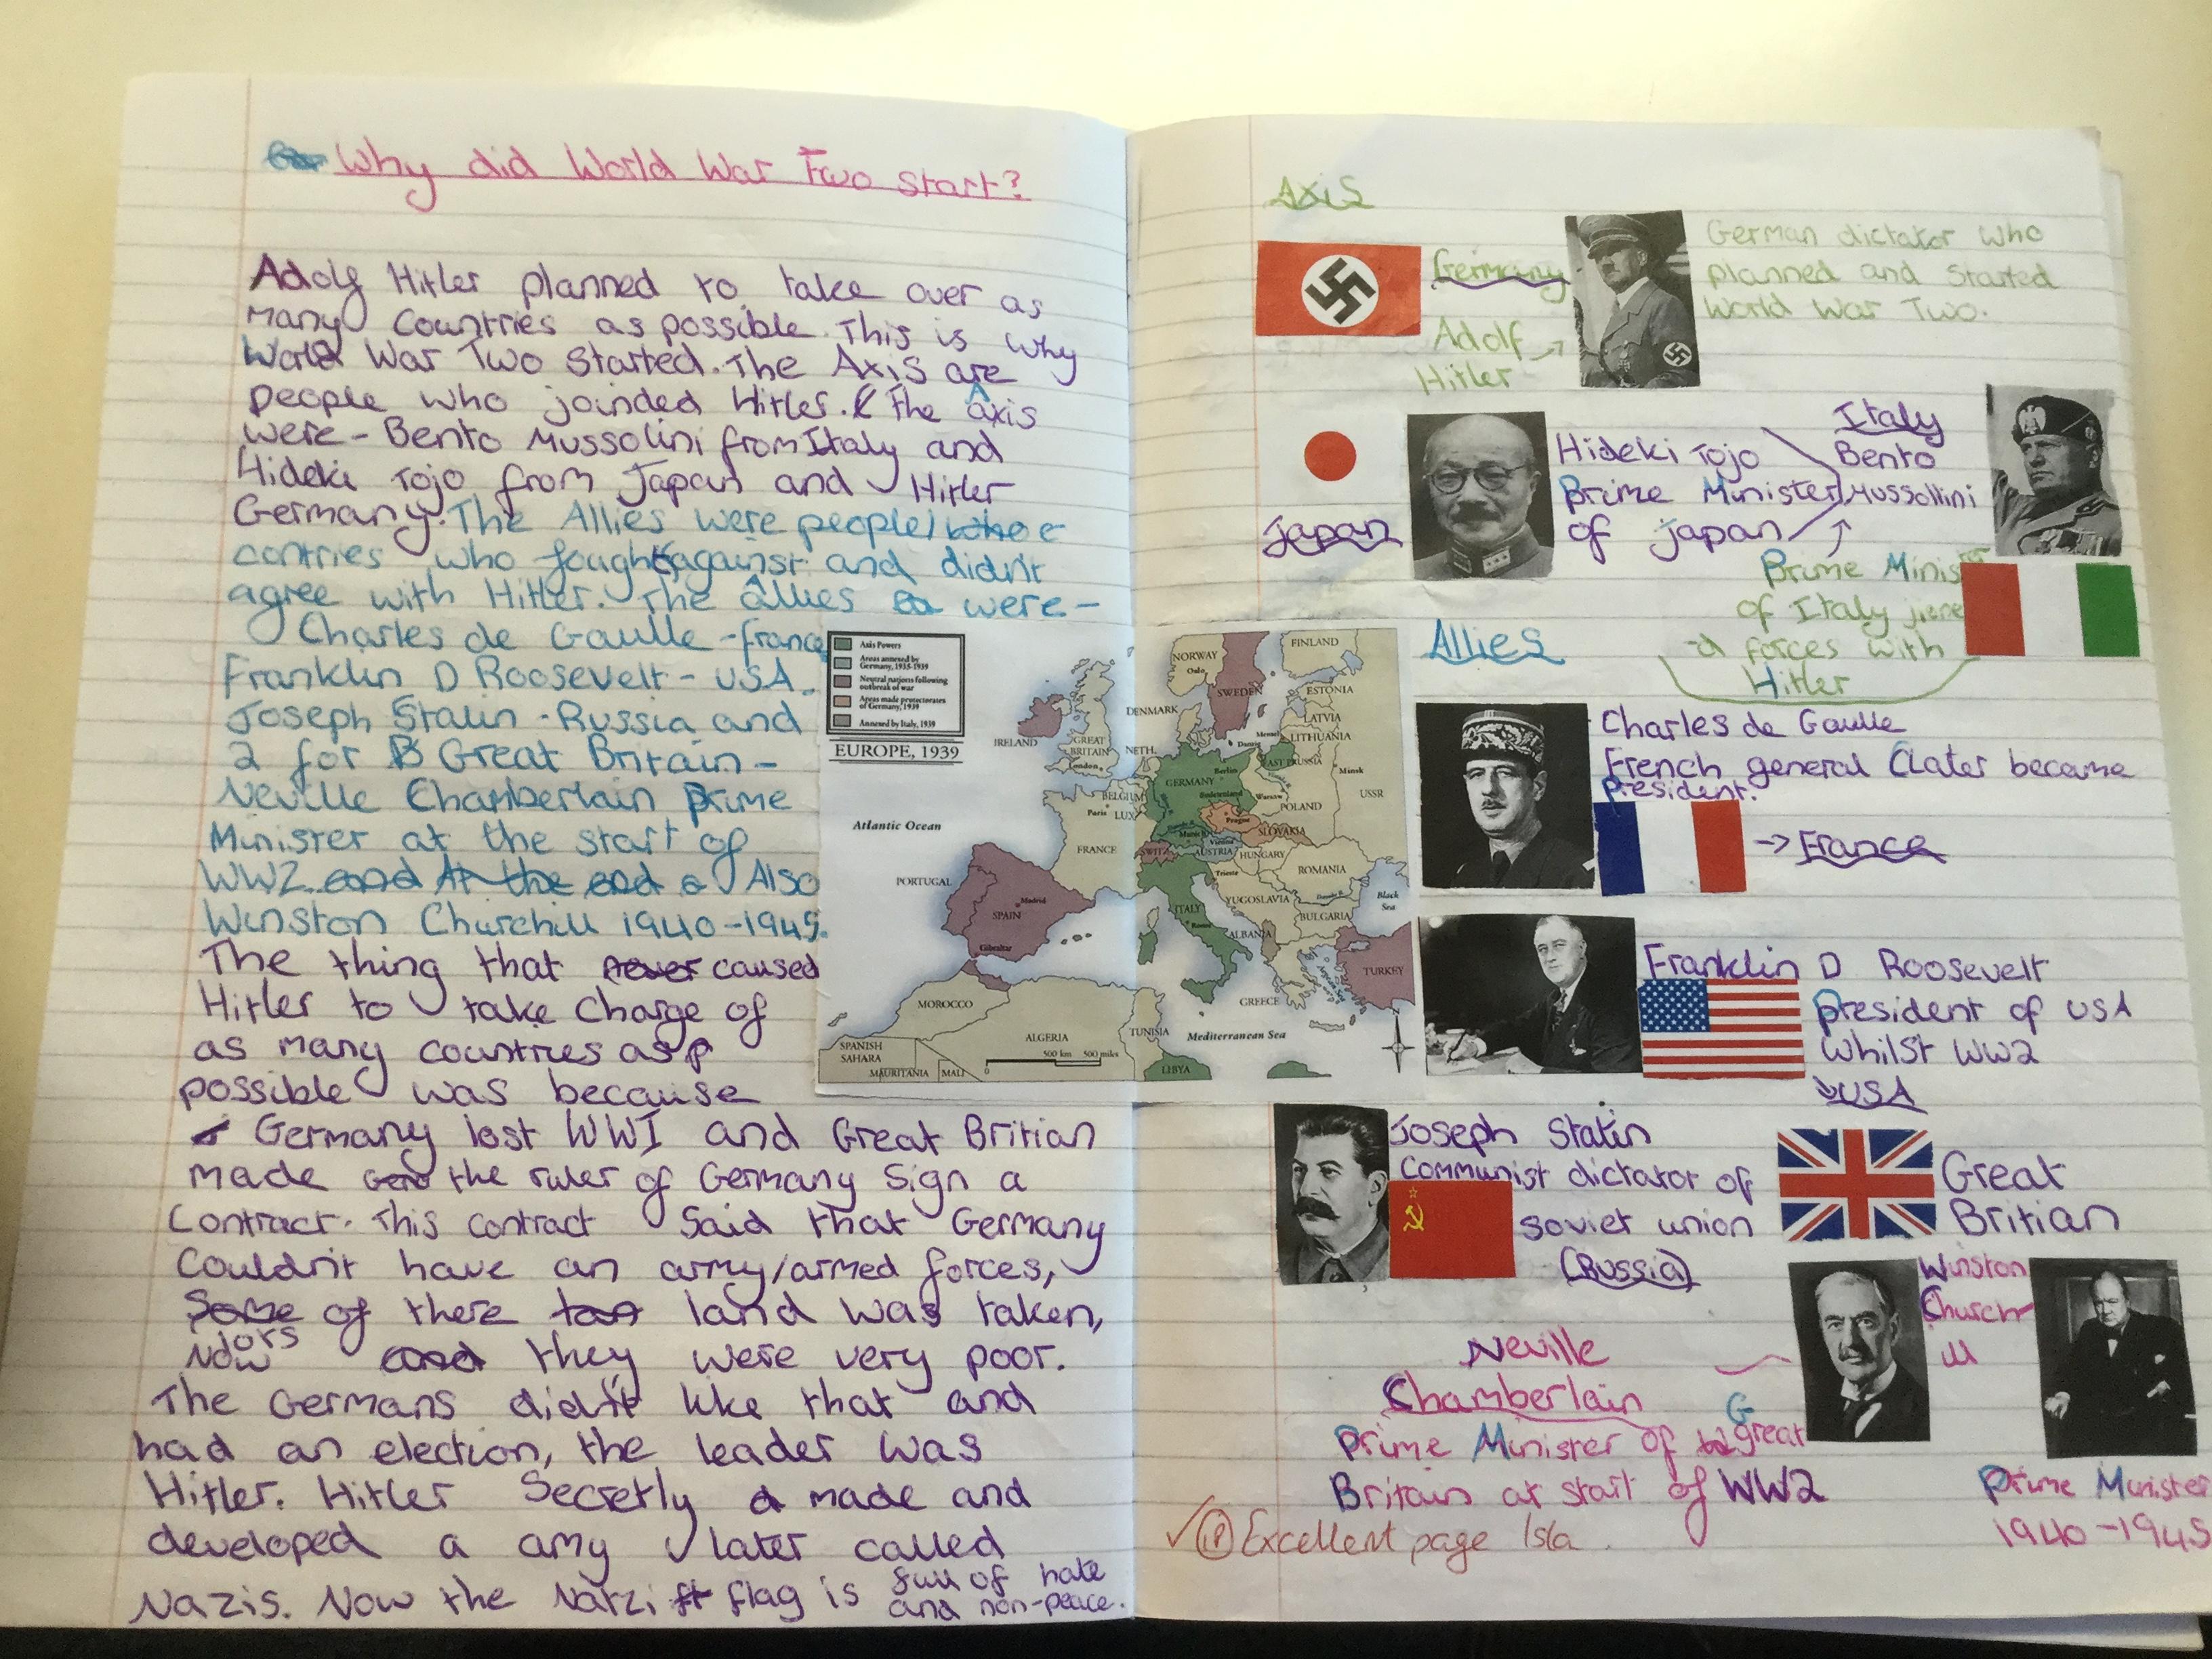 Why did World War Two start?
Adolf Hitler planned to take over as
many Countries as possible. This is why
World War Two Started. The Axis are
people who joinded Hitler. The Axis
were - Bento Mussolini from Italy and
Hideki Tojo from Japan and Hitler
Germany. The Allies were people/
contries who fought against and didn't
agree with Hitler. The Allies were -
Charles de Gaulle - france
Franklin D Roosevelt - USA.
Joseph Stalin - Russia and
2 for Great Britain -
Neville Chamberlain Prime
Minister at the start of
WW2. and At the end Also
Winston Churchill 1940-1945.
The thing that never caused
Hitler to take Charge of
as many countries as p
possible was because
Germany lost WWI and Great Britian
made the ruler of Germany Sign a
Contract. This contract Said that Germany
Couldn't have an army/armed forces,
Some of there land was taken,
and they were very poor.
The Germans didn't like that and
had an election, the leader was
Hitler. Hitler Secretly made and
developed a amy later called
Nazis. Now the Natzi flag is full of hate
and non-peace.
Axis Powers
Areas annexed by
Germany, 1935-1939
Neutral nations following
outbreak of war
Areas made protectorates
of Germany, 1939
Annexed by Italy, 1939
EUROPE, 1939
NORWAY
Oslo
SWEDEN
FINLAND
ESTONIA
LATVIA
LITHUANIA
Memel
DENMARK
IRELAND
GREAT
BRITAIN
London
NETH.
Danzig
EAST PRUSSIA
Berlin
GERMANY
Minsk
USSR
BELGIUM
Sudetenland
Warsaw
POLAND
Paris
LUX.
Prague
SLOVAKIA
Atlantic Ocean
FRANCE
Munich
Vienna
SWITZ.
AUSTRIA
HUNGARY
ROMANIA
Trieste
PORTUGAL
Madrid
SPAIN
YUGOSLAVIA
Danube R.
Black
Sea
ITALY
Rome
BULGARIA
ALBANIA
Gibraltar
TURKEY
GREECE
Aegean Sea
MOROCCO
ALGERIA
TUNISIA
Mediterranean Sea
SPANISH
SAHARA
MAURITANIA
MALI
0
500 km
500 miles
LIBYA
N
Axis
Germany
Adolf
Hitler
German dictator who
planned and Started
World War Two.
Japan
Hideki Tojo
Prime Minister
of Japan
Italy
Bento
Mussollini
Prime Minister
of Italy jione
-d forces with
Hitler
Allies
Charles de Gaulle
French general Clater became
President.
France
Franklin D Roosevelt
President of USA
Whilst WW2
USA
Joseph Stalin
Communist dictator of
Soviet union
(Russia)
Great
Britian
Neville
Chamberlain
Prime Minister of Great
Britain at start of WW2
Winston
Church-
ill
Prime Minister
1940-1945
Excellent page Isla.